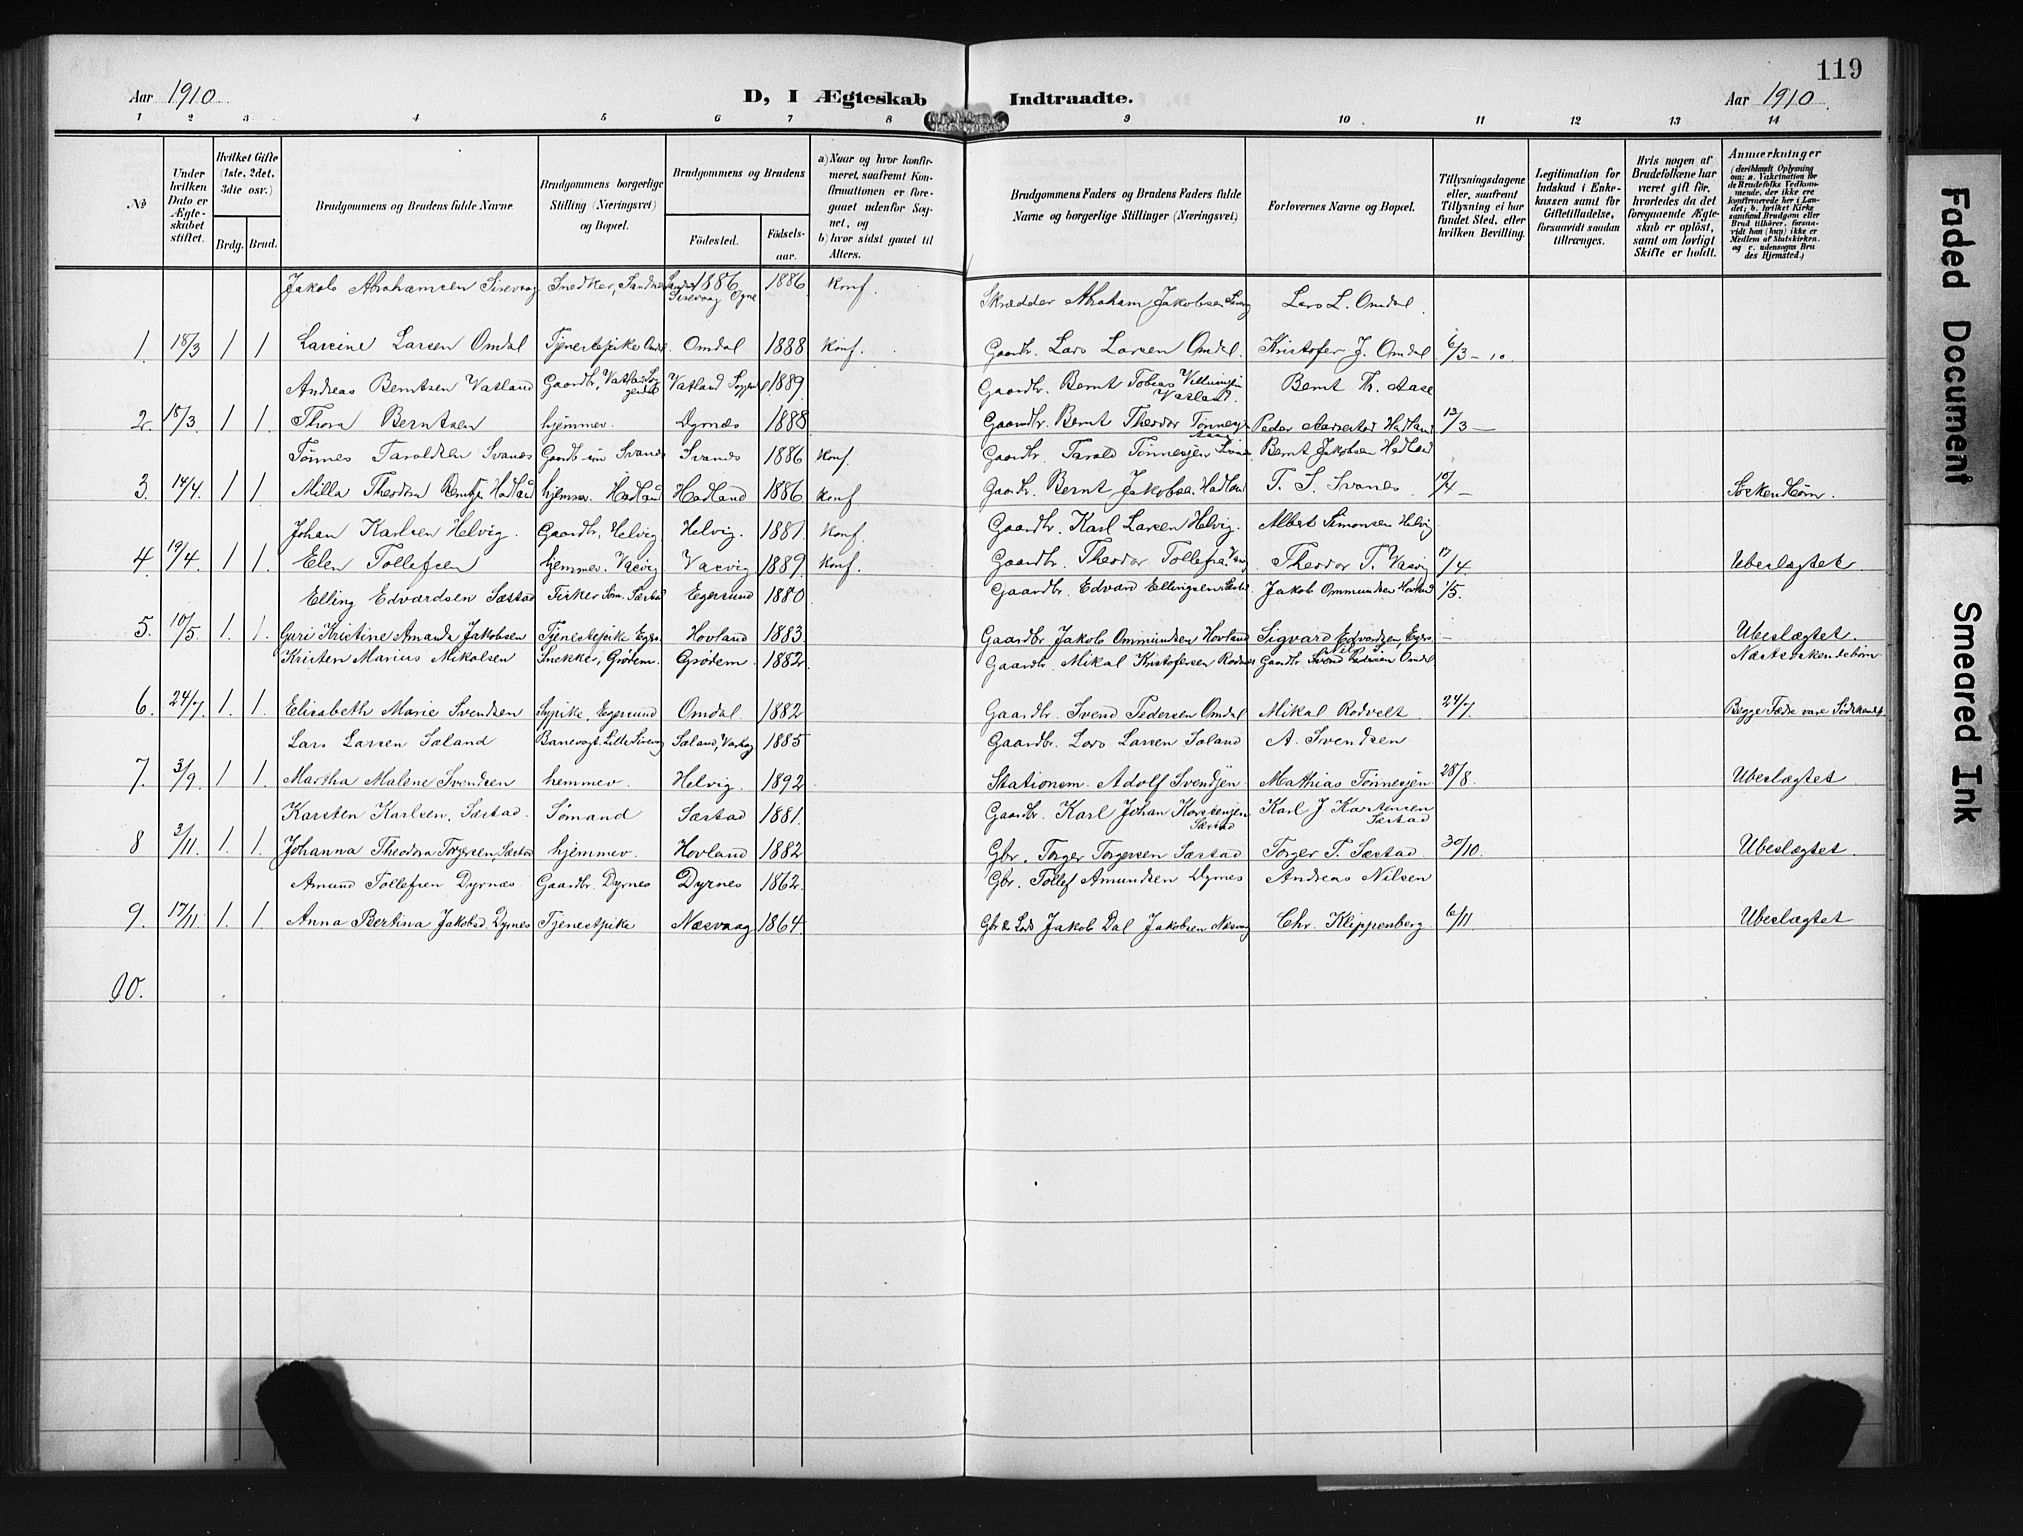 119
Aar 1910
D, I Ægteskab Indtraadte.
Aar 1910
1 2 3 4 5 6 7 8 9 10 11 12 13 14
№
Under hvilken Dato er Ægteskabet stiftet.
Hvilket Gifte (1ste, 2det, 3die osv.)
Brdg. Brud.
Brudgommens og Brudens fulde Navne
Brudgommens borgerlige Stilling (Næringsvei) og Bopæl.
Brudgommens og Brudens
Fødested.
Fødselsaar.
a) Naar og hvor konfirmeret, saafremt Konfirmationen er foregaaet udenfor Sognet, og
b) hvor sidst gaaet til Alters.
Brudgommens Faders og Brudens Faders fulde Navne og borgerlige Stillinger (Næringsvei)
Forlovernes Navne og Bopæl.
Tillysningsdagene eller, saafremt Tillysning ei har fundet Sted, efter hvilken Bevilling.
Legitimation for Indskud i Enkekassen samt for Giftetilladelse, forsaavidt saadan tiltrænges.
Hvis nogen af Brudefolkene har været gift før, hvorledes da det foregaaende Ægteskab er opløst, samt om lovligt Skifte er holdt.
Anmærkninger
(deriblandt Oplysning om: a. Vakcination for de Brudefolks Vedkommende, der ikke ere konfirmerede her i Landet; b. hvilket Kirkesamfund Brudgom eller Brud tilhører, forsaavidt han (hun) ikke er Medlem af Statskirken, og c. udensogns Brudes Hjemsted.)
Jakob Abrahamsen Sirevaag Snedker, Sandnes 1886 Sirevaag Ogne 1886 Konf. Skrædder Abraham Jakobsen Lars L. Omdal
1. 18/3 1 1 Larsine Larsen Omdal Tjenestepike Omdal Omdal 1888 Konf. Gaardbr. Lars Larsen Omdal. Kristofer J. Omdal 6/3 - 10
Andreas Berntsen Vatland Gaardbr, Vatland Vatland 1889. Gaardbr. Bernt Tobias Vatland. Bernt Th. Aase
2. 18/3. 1 1 Thora Berntsen hjemmev. Dyrnæs 1888 Gaardbr. Bernt Theodor Tønnesen Peder Hadland 13/3 -
Tønnes Taroldsen Svanes Svanes Svanes 1886 Konf. Gaardbr. Tarald Tønnesjen Bernt Jakobsen Hadland
3. 14/4. 1 1 Milla Theodora Hadland hjemmev. Hadland Hadland 1886 Konf Gaardbr. Bernt Jakobsen Hadland T. S. Svanes 10/4 -
Johan Karlsen Helvig. Gaardbr, Helvig Helvig. 1881. Konf. Gaardbr. Karl Larsen Helvig. Albert Simonsen Helvig
4. 19/4. 1 1. Elen Tollefsen hjemmev. Vasvig Vasvig 1889. Konf. Gaardbr. Theodor Tollefs. Theodor T. Vasvig 17/4 Ubeslægtet
Elling Edvardsen Sæstad Sæstad Egersund 1880 Gaardbr. Edvard Ellingsen Jakob Ommundsen Hovland 1/5.
5. 10/5. 1. 1. Guri Kristine Amanda Jakobsen Tjenestepike Hovland 1883. Gaardbr Jakob Ommundsen Hovland Sigvard Edvardsen - Ubeslægtet.
Kristen Marius Mikalsen Snekker, Grødem. Grødem 1882 Gaardbr. Mikal Kristofersen Gaardbr. Svend Pedersen Omdal Næstsøskendebørn
6. 24/7. 1. 1. Elisabeth Marie Svendsen Sypike, Egersund Omdal. 1882 Gaardbr. Svend Pedersen Omdal Mikal Rodvelt 24/7 Begge Fædre vare
Lars Larsen Søland Banevogt. Lille Sirevaag Søland, 1885 Gaardbr. Lars Larsen Søland A. Svendsen
7. 3/9. 1 1. Martha Malene Svendsen hemmev. Helvig. 1892 Stationsm. Adolf Svendsen Mathias Tønnesjen 28/8. Ubeslægtet
Karsten Karlsen, Sæstad. Sømand Sæstad 1881. Gaardbr. Karl Johan Karstensjen Sæstad Karl J Karstensen Sæstad
8 3/11. 1. 1. Johanna Theodora Torgersen, Sæstad hjemmev. Hovland 1882 Gbr. Torger Torgersen Sæstad Torger T. Sæstad. 30/10. Ubeslægtet.
Amund Tollefsen Dyrnæs. Gaardbr. Dyrnes Dyrnes 1862. Gbr. Tollef Amundsen Dyrnes Andreas Nilsen
9. 17/11. 1. 1 Anna Bertina Jakobsd. Dyrnes Tjenestpike Næsvaag 1864. Gbr & Lods Jakob Dal Jakobsen Næsvaag Chr. Klippenberg. 6/11. Ubeslægtet
10.
Faded Document
Smeared Ink